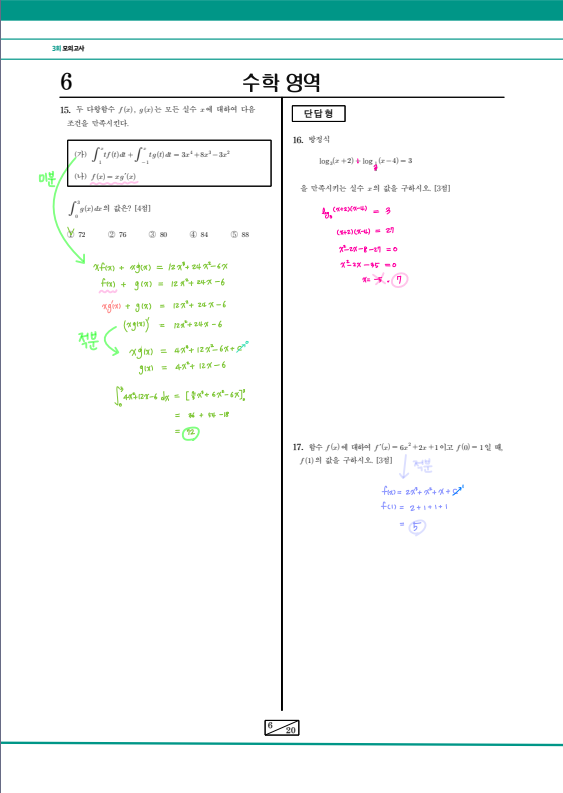 3회 모의고사
6 수학 영역
15. 두 다항함수 f(x), g(x)는 모든 실수 x에 대하여 다음
조건을 만족시킨다.
(가) ∫₁ˣ tf(t)dt + ∫₋₁ˣ tg(t)dt = 3x⁴+8x³−3x²
(나) f(x)=xg′(x)
미분
∫₀³ g(x)dx의 값은? [4점]
① 72 ② 76 ③ 80 ④ 84 ⑤ 88
xf(x) + xg(x) = 12x³+24x²−6x
f(x) + g(x) = 12x²+24x−6
xg′(x) + g(x) = 12x²+24x−6
(xg(x))′ = 12x²+24x−6
적분
xg(x) = 4x³+12x²−6x+
g(x) = 4x²+12x−6
∫₀³ 4x²+12x−6 dx = [4/3x³+6x²−6x]₀³
= 36 + 54 −18
= 72
단답형
16. 방정식
log₃(x+2)+log (x−4)=3
을 만족시키는 실수 x의 값을 구하시오. [3점]
(x+2)(x−4) = 3
(x+2)(x−4) = 27
x²−2x−8−27 =0
x²−2x−35 =0
x= −5 , 7
17. 함수 f(x)에 대하여 f′(x)=6x²+2x+1이고 f(0)=1일 때,
f(1)의 값을 구하시오. [3점]
적분
f(x)= 2x³+x²+x+
f(1) = 2+1+1+1
= 5
6
20